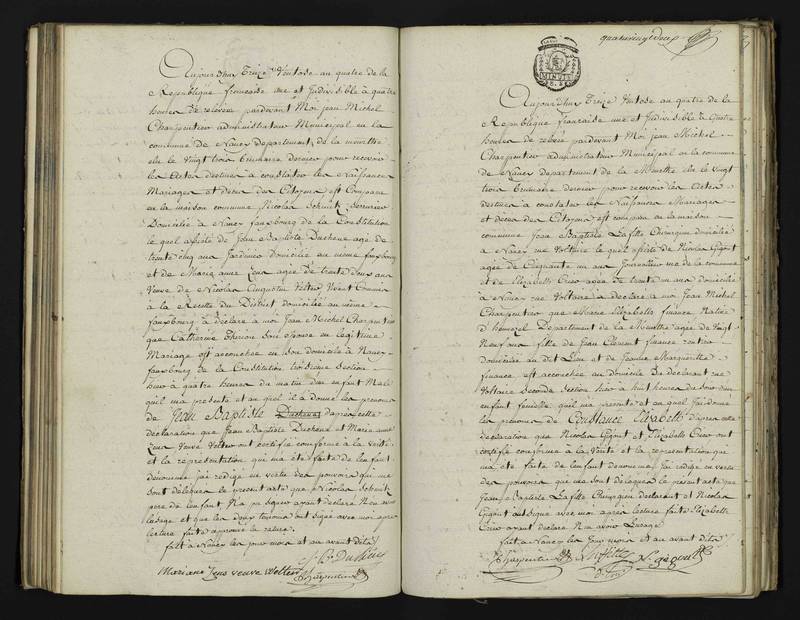 Aujourd'huy Treize Ventose an quatre de la
Republique française une et Indivisible à quatre
heures de relevée pardevant Moi jean Michel
Charpentier administrateur Municipal en la
commune de Nancy departement de la meurthe
elu le Vingt trois Brumaire dernier pour recevoir
les Actes destinés à constater les Naissances
Mariages et deces des Citoyens est Comparu
en la maison commune Nicolas Schmitz Serrurier
Domicilié à Nancy fauxbourg de la Constitution
le quel assisté de Jean Baptiste Duchene agé de
trente cinq ans Jardinier Domicilié au même fauxbourg
et de Marie anne Lens agée de trente deux ans
Veuve de Nicolas Augustin Velter Vivant Commis
à la Recette du District domiciliée au même
fauxbourg à déclaré à moi Jean Michel Charpentier
que Catherine Thirion Son Epouse en legitime
Mariage est accouchée en son domicile à Nancy
fauxbourg de la Constitution troisieme Section
hier à quatre heures du matin d'un enfant Male
qu'il ma presenté et au quel il à donné les prenoms
de Jean Baptiste Duchene d'apres cette
declaration que Jean Baptiste Duchene et Marie anne
Lens Veuve Velter ont certifié conforme à la Verité
et la représentation qui ma été faite de l'enfant
dénommé j'ai rédigé en vertu des pouvoirs qui me
sont délégués le present acte que Nicolas Schmitz
pere de l'enfant N'a pu signer ayant déclaré N'en avoir
l'usage et que les deux temoins ont signé avec moi apres
lecture faite approuvé la rature.
fait à Nancy les jour mois et an avant dits
J. B. Duchene
Mariane Lens veuve Welter Charpentier
quatrevingt deux
Aujourd'huy Treize Ventose an quatre de la
Republique Francaise une et Indivisible à Quatre
heures de relevée pardevant Moi jean Michel
Charpentier administrateur Municipal en la commune
de Nancy departement de la Meurthe elu le Vingt
trois Brumaire dernier pour recevoir les Actes
destinés à constater les Naissances Mariages
et deces des Citoyens est comparu en la maison
commune Jean Baptiste Lafitte Chirurgien domicilié
à Nancy rue Voltaire le quel assisté de Nicolas Gigout
agé de Cinquante un ans Journalier rue de la commune
et de Elizabeth agée de trente un ans domiciliée
à Nancy rue Voltaire à declaré a moi Jean Michel
Charpentier que Marie Elizabeth finance Native
Département de la Meurthe agée de Vingt
Neuf ans fille de Jean Clement finance
domicilié au dit Lieu et de Jeanne Marguerithe
finance est accouchée au domicile du declarant rue
Voltaire Seconde Section hier à huit heures du Soir d'un
enfant femelle qu'il ma presenté et au quel j'ai donné
les prenoms de Constance Elizabeth d'apres cette
declaration que Nicolas Gigout et Elizabeth ont
certifié conforme à la Verité et la representation qui
ma été faite de l'enfant denommé j'ai redigé en vertu
des pouvoirs qui me sont délegués le present acte que
Jean Baptiste Lafitte Chirurgien declarant et Nicolas
Gigout ont signé avec moi apres lecture faite Elizabeth
ayant déclaré N'en avoir l'usage
fait à Nancy les jour mois et an avant dits
Charpentier Laffitte N. gigout